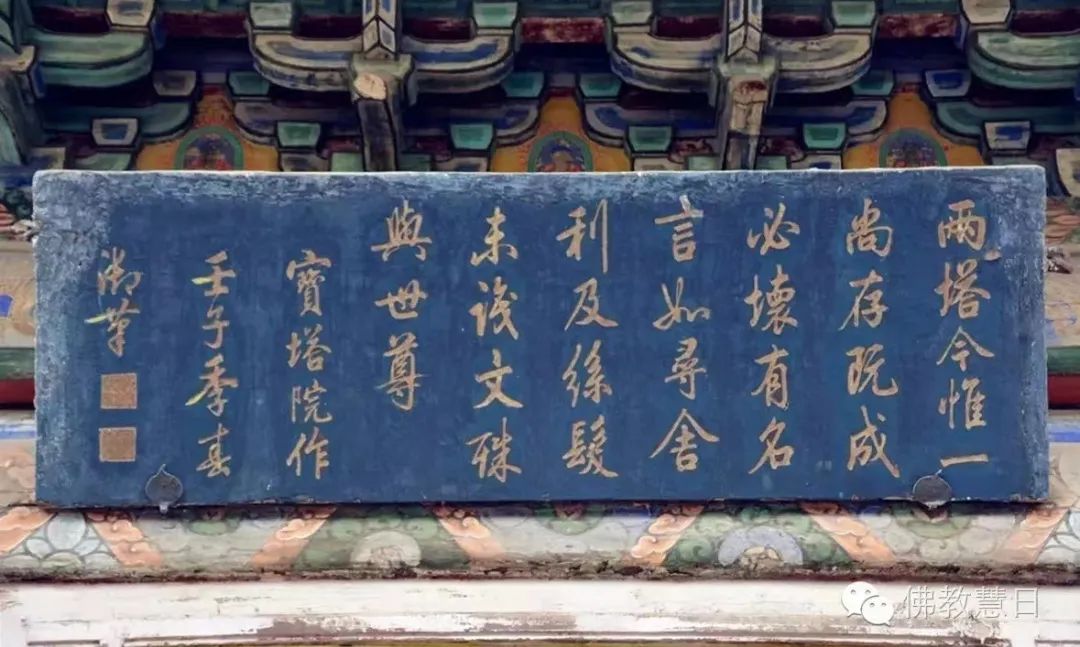 兩塔今惟一
尚存既成
必壞有名
言如尋舍
利及絲髮
未議文殊
與世尊
寶塔院作
壬子季春
御筆
佛教慧日